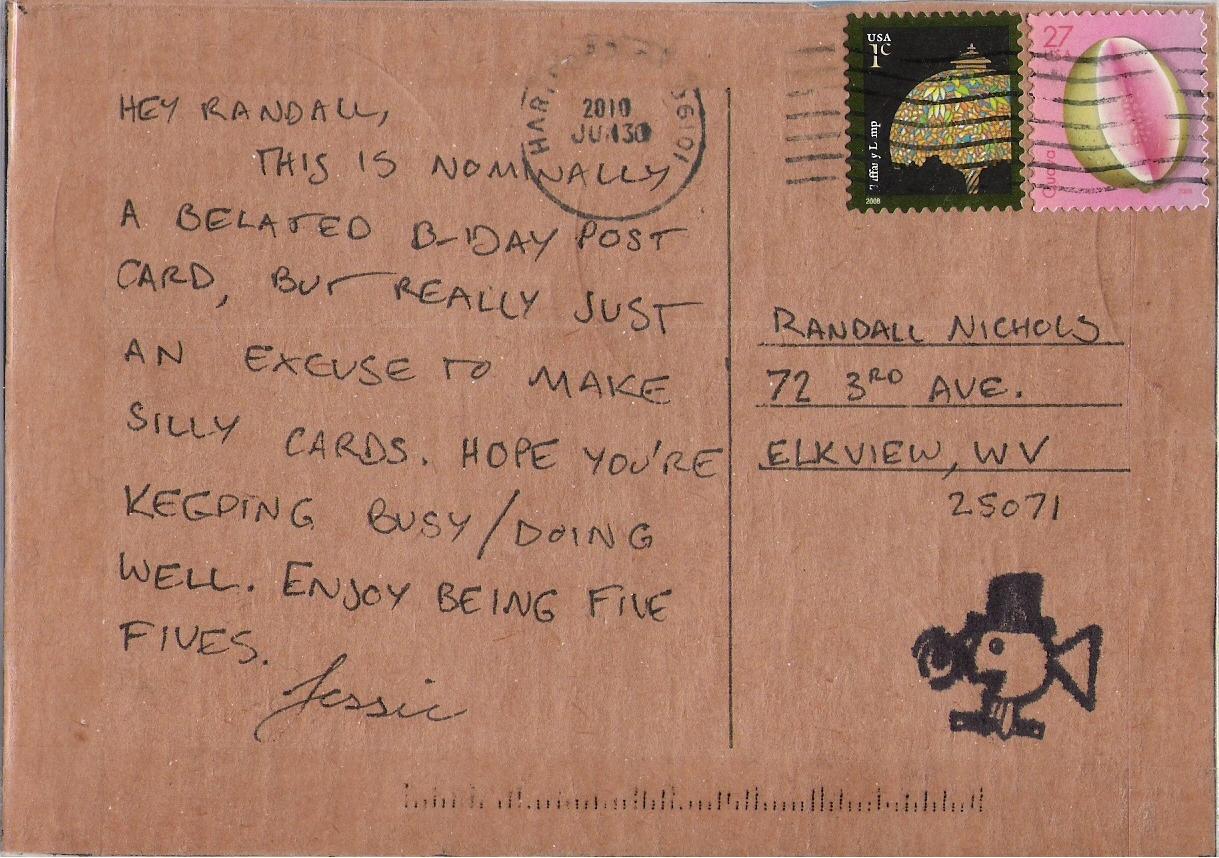 HEY RANDALL,
THIS IS NOMINALLY
A BELATED B-DAY POST
CARD, BUT REALLY JUST
AN EXCUSE TO MAKE
SILLY CARDS. HOPE YOU'RE
KEEPING BUSY/DOING
WELL. ENJOY BEING FIVE
FIVES.
Jessie
2010
USA
1c
Tiffany Lamp
2008
27
USA
Guava
RANDALL NICHOLS
72 3RD AVE.
ELKVIEW, WV
25071